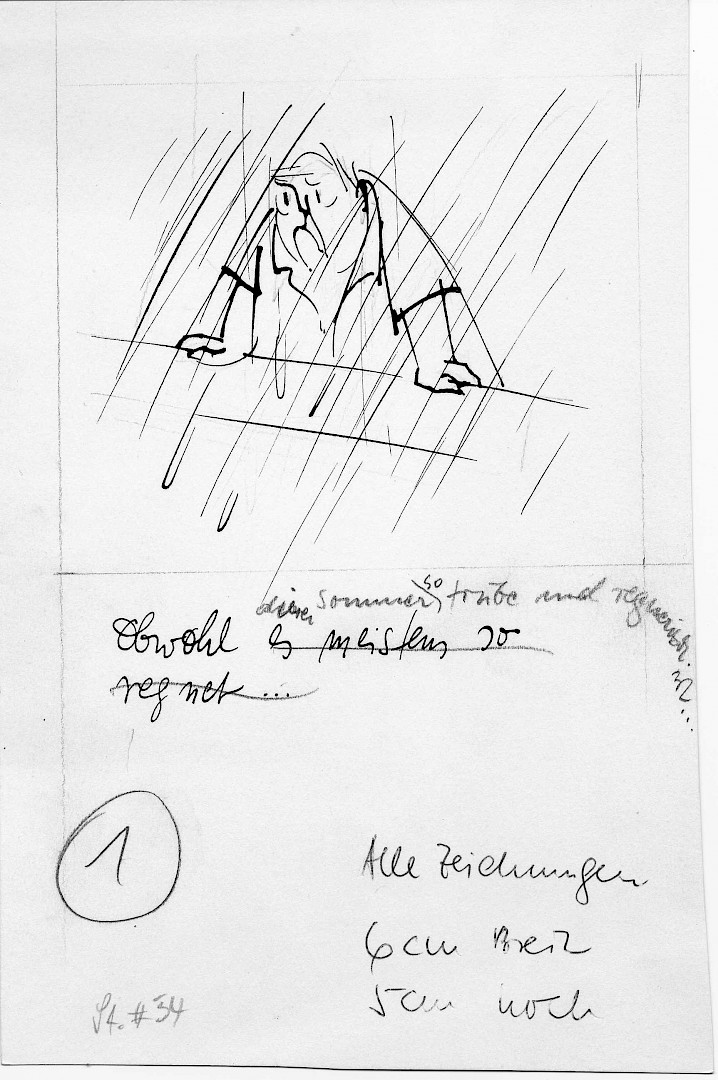 so
dieser Sommer, trübe und regnerisch
ist...
Obwohl es meistens so
regnet ...
1
Alle Zeichnungen
6cm Breit
5cm hoch
St. #34